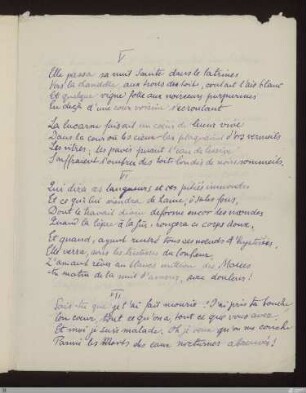 V
Elle passa sa nuit sainte dans les latrines
Vers la chandelle, aux trous du toit, coulait l'air blanc
Et quelque vigne folle aux noirceurs purpurines
En deçà d'une cour voisine s'écroulant
La lucarne faisait un cœur de lueur vive
Dans la cour où les cieux bas plaquaient d'ors vermeils
Les vitres, les pavés puant l'eau de lessive
Souffraient l'ombre des toits bondés de noirs sommeils.
VI
Qui dira ces langueurs et ces pitiés immondes
Et ce qui lui viendra de haine, ô sales fous,
Dont le travail divin déforme encor les mondes
Quand la lèpre, à la fin, rongera ce corps doux,
Et quand, ayant rentré tous ses nœuds d'hystéries,
Elle verra, sous les tristesses du bonheur,
L'amant rêver au blanc million des Maries
Au matin de la nuit d'amour, avec douleur!
VII
Sais-tu que je t'ai fait mourir? J'ai pris ta bouche,
Ton cœur, tout ce qu'on a, tout ce que vous avez,
Et moi je suis malade. Oh je veux qu'on me couche
Parmi les Morts des eaux nocturnes abreuvés!